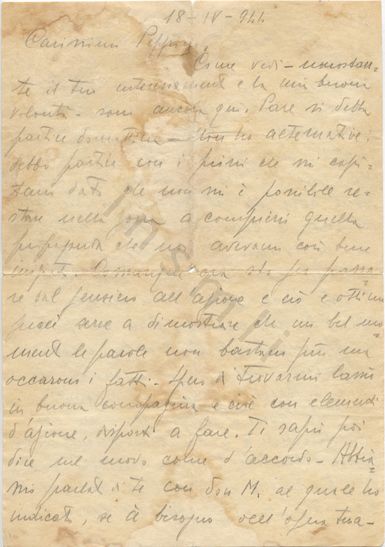 18-IV-944
Carissimo Peppino,
Come vedi - nonostan-
te il tuo interessamento e la mia buona
volontà - sono ancora qui. Pare si debba
partire domattina - Non ho alternative:
debbo partire con i primi che mi capi-
tano dato che non mi è possibile re-
stare nella zona a compiere quella
propaganda che noi avevamo così bene
iniziata. Comunque ora sto per passa-
re dal pensiero all'azione e ciò
serve a dimostrare che un bel mo-
mento le parole non bastano più ma
occorrono i fatti. Spero di trovarmi lassù
in buona compagnia e cioè con elementi
d'azione, disposti a fare. Ti saprò poi
dire nel modo come d'accordo - Abbia-
mo parlato di te con don M. al quale ho
indicato, se à bisogno dell'opera tua-